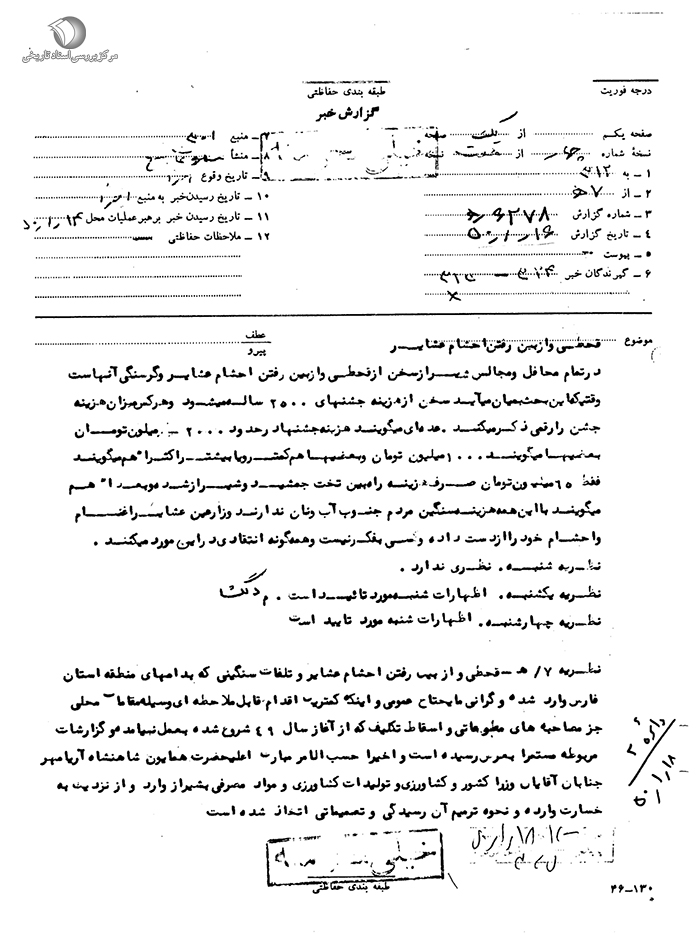 مرکز بررسی اسناد تاریخی
درجه فوریت
طبقه بندی حفاظتی
گزارش خبر
صفحه یکم از یک صفحه
نسخهٔ شماره چهار از هشت نسخه
۱ ـ به ۳۱۲
۲ ـ از ۷ هـ
۳ ـ شماره گزارش
۴ ـ تاریخ گزارش ۵۰/۱/۱۶
۵ ـ پیوست
۶ ـ گیرندگان خبر
۷ ـ منبع
۸ ـ منشأ
۹ ـ تاریخ وقوع
۱۰ ـ تاریخ رسیدن خبر به منبع
۱۱ ـ تاریخ رسیدن خبر برهبر عملیات محل ۵۰/۱/۱۴
۱۲ ـ ملاحظات حفاظتی
خیلی محرمانه
موضوع
قحطی و ازبین رفتن احشام عشایر
عطف
پیرو
در تمام محافل و مجالس شیراز سخن از قحطی و ازبین رفتن احشام عشایر و گرسنگی آنهاست
وقتیکه این بحث بمیان میآید سخن از هزینه جشنهای ۲۵۰۰ ساله میشود و هرکس میزان هزینه
جشن را رقمی ذکر میکند . عده‌ای میگویند هزینه جشنها در حدود ۲۰۰۰ میلیون تومان
بعضیها میگویند ۱۰۰۰ میلیون تومان و بعضیها هم کمتر و یا بیشتر اکثرا" هم میگویند
فقط ۶۵ میلیون تومان صرف هزینه راه بین تخت جمشید و شیراز شده و بعدا" هم
میگویند با این همه هزینه سنگین مردم جنوب آب و نان ندارند و زارعین عشایر اغنام
و احشام خود را از دست داده و کسی بفکر نیست و همه گونه انتقادی در این مورد میکنند .
نظریه شنبه . نظری ندارد .
نظریه یکشنبه . اظهارات شنبه مورد تائید است .
نظریه چهارشنبه . اظهارات شنبه مورد تایید است
نظریه ۷/ هـ ـ قحطی و از بین رفتن احشام عشایر و تلفات سنگینی که بدامهای منطقه استان
فارس وارد شده و گرانی مایحتاج عمومی و اینکه کمترین اقدام قابل ملاحظه ای وسیله مقامات محلی
جز مصاحبه های مطبوعاتی و اسقاط تکلیف که از آغاز سال ۴۹ شروع شده بعمل نیامده و گزارشات
مربوطه مستمرا بعرض رسیده است و اخیرا حسب الامر مبارک اعلیحضرت همایون شاهنشاه آریامهر
جنابان آقایان وزرا کشور و کشاورزی و تولیدات کشاورزی و مواد مصرفی بشیراز وارد و از نزدیک به
خسارت وارده و نحوه ترمیم آن رسیدگی و تصمیماتی اتخاذ شده است
دایره ۲
۵۰/۱/۱۸
خیلی محرمانه
طبقه بندی حفاظتی
۴۶ـ۱۳۰